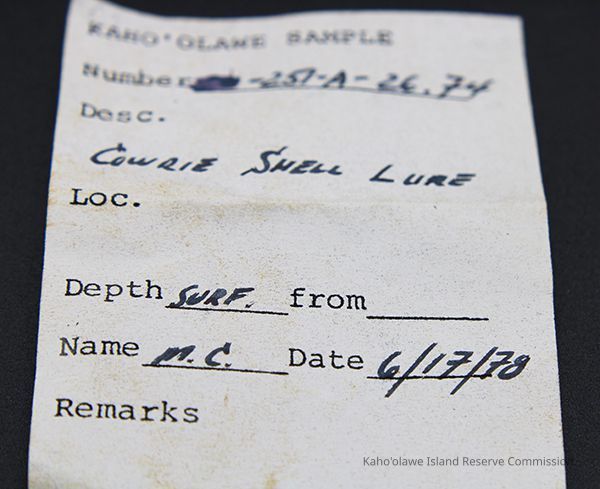 KAHO'OLAWE SAMPLE
Number -251-A-26,74
Desc.
COWRIE SHELL LURE
Loc.
Depth SURF. from
Name M.C. Date 6/17/78
Remarks
Kaho'olawe Island Reserve Commission